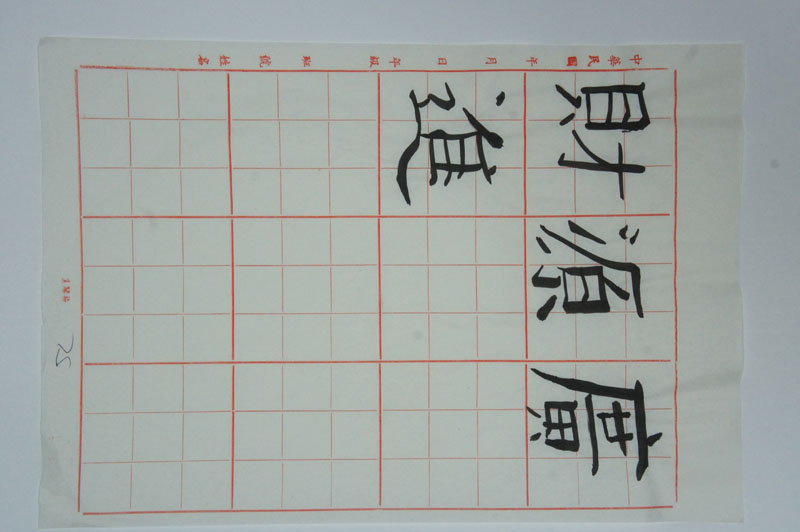 中華民國 年 月 日 年級 班 號 姓名
財源廣
進
25